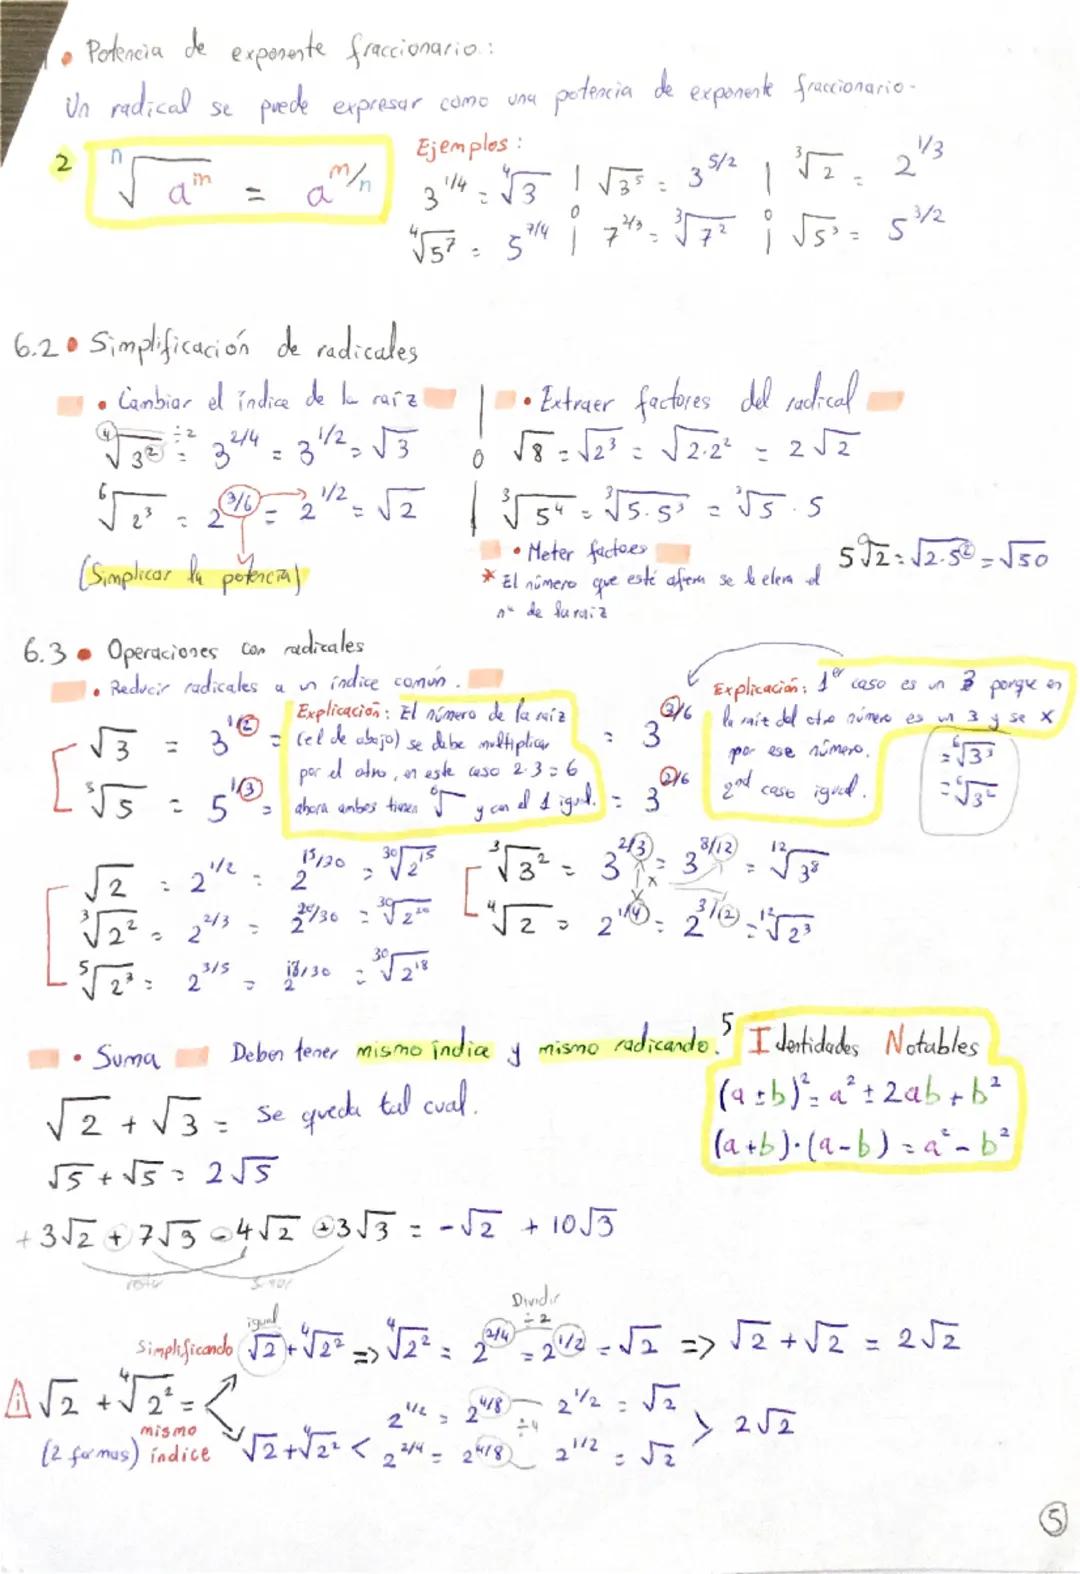 • Potencia de exponente fraccionario:
Un radical se puede expresar como una potencia de exponente fraccionario.
2 ⁿ√aᵐ = a^m/n
Ejemplos:
3^1/4 = ⁴√3 | √3⁵ = 3^5/2 | ³√2 = 2^1/3
⁴√5⁷ = 5^7/4 | 7^2/3 = ³√7² | √5³ = 5^3/2
6.2 • Simplificación de radicales
• Cambiar el índice de la raíz
⁴√3² = 3^2/4 = 3^1/2 = √3
÷2
⁶√2³ = 2^3/6 = 2^1/2 = √2
(Simplicar la potencia)
• Extraer factores del radical
√8 = √2³ = √2·2² = 2√2
³√5⁴ = ³√5·5³ = ³√5 · 5
• Meter factores
* El número que esté afuera se le eleva al
nº de la raíz
5√2 = √2·5² = √50
6.3 • Operaciones con radicales
• Reducir radicales a un índice común.
√3 = 3^1/2 = = 3^3/6
³√5 = 5^1/3 = = 3^2/6
Explicación: El número de la raíz
(el de abajo) se debe multiplicar
por el otro, en este caso 2·3=6
ahora ambos tienen ⁶√ y con el 1 igual.
Explicación: 1er caso es un 3 porque en
la raíz del otro número es un 3 y se x
por ese número.
2nd caso igual.
= ⁶√3³
= ⁶√3²
√2 = 2^1/2 = 2^15/30 = ³⁰√2¹⁵
³√2² = 2^2/3 = 2^20/30 = ³⁰√2²⁰
⁵√2³ = 2^3/5 = 2^18/30 = ³⁰√2¹⁸
³√3² = 3^2/3 = 3^8/12 = ¹²√3⁸
x
⁴√2 = 2^1/4 = 2^3/12 = ¹²√2³
• Suma Deben tener mismo índice y mismo radicando.
√2 + √3 = Se queda tal cual.
√5 + √5 = 2√5
5 Identidades Notables
(a ± b)² = a² ± 2ab + b²
(a + b)·(a - b) = a² - b²
+3√2 + 7√3 - 4√2 + 3√3 = -√2 + 10√3
restar
igual
Dividir
÷2
Simplificando √2 + ⁴√2² => ⁴√2² = 2^2/4 = 2^1/2 = √2 => √2 + √2 = 2√2
√2 + ⁴√2² =
mismo
(2 formas) índice
√2 + ⁴√2² <
2^1/2 = 2^4/8 2^1/2 = √2
÷4
2^2/4 = 2^4/8 2^1/2 = √2
> 2√2
5